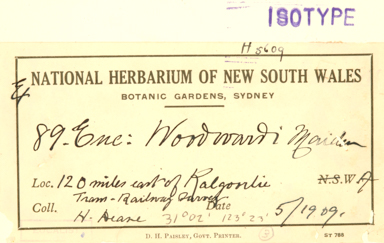 ISOTYPE
H 5609
Ex NATIONAL HERBARIUM OF NEW SOUTH WALES
BOTANIC GARDENS, SYDNEY
89. Euc: Woodwardi Maiden
Loc. 120 miles east of Kalgoorlie N.S.W.
Trans-Railway Survey
Coll. H. Deane Date 5/1909.
31°02' 123°23'
D. H. PAISLEY, GOVT. PRINTER. ST 788